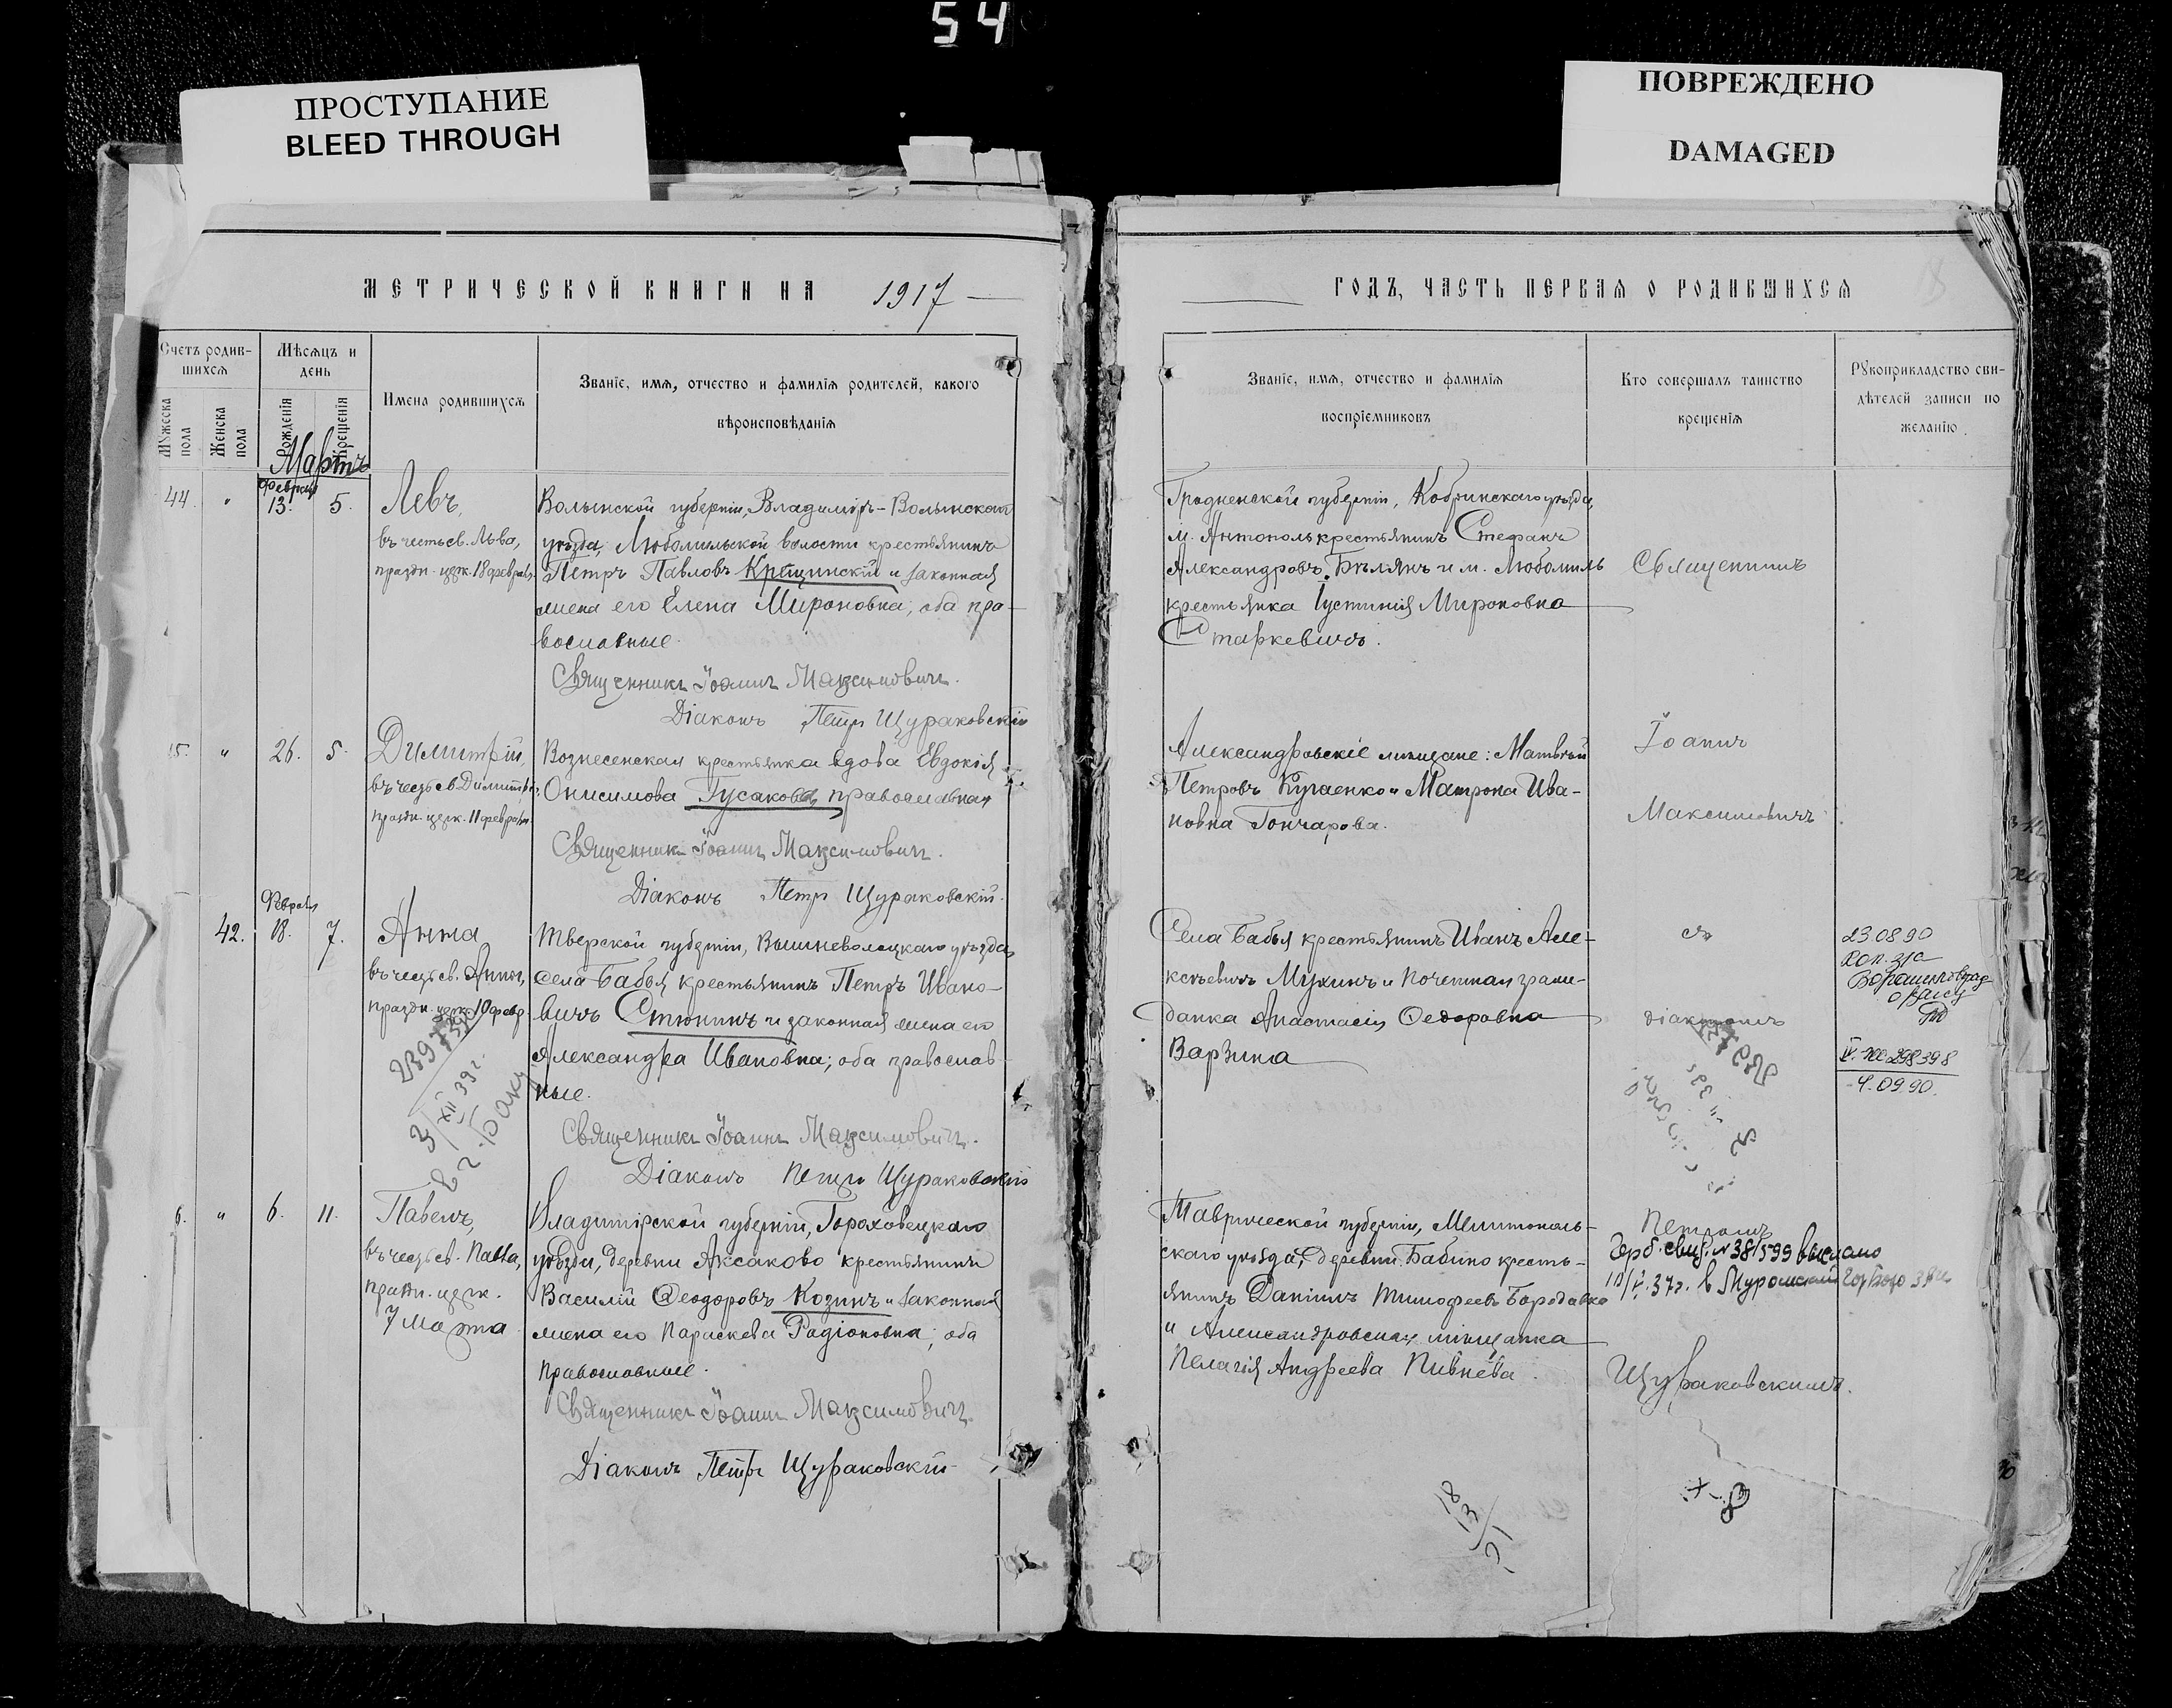 54
ПРОСТУПАНИЕ
BLEED THROUGH
ПОВРЕЖДЕНО
DAMAGED
МЕТРИЧЕСКОЙ КНИГИ НА 1917
Счетъ родив-
шихся
Мѣсяцъ и
день
Мужеска пола
Женска пола
Рожденія
Крещенія
Имена родившихся
Званіе, имя, отчество и фамилія родителей, какого
вѣроисповѣданія
Мартъ
44. " Февраля 13. 5.
Левъ,
въ честь св. Льва,
праздн. церк. 18 февраля.
Волынской губерніи, Владиміръ-Волынскаго
уѣзда, Любомльской волости крестьянинъ
Петръ Павловъ Крещинскій и законная
жена его Елена Мироновна, оба пра-
вославные.
Священникъ Іоаннъ Максимовичъ.
Діаконъ Петръ Щураковскій
5. " 26. 5.
Димитрій,
въ честь св. Димитрія,
праздн. церк. 11 февраля.
Вознесенская крестьянка вдова Евдокія
Онисимова Гусакова, православная
Священникъ Іоаннъ Максимовичъ.
Діаконъ Петръ Щураковскій.
42. Февраля 18. 7.
Анна
въ честь св. Анны,
праздн. церк. 10 февр.
Тверской губерніи, Вышневолоцкаго уѣзда,
села Бабья крестьянинъ Петръ Ивано-
вичъ Стюнинъ и законная жена его
Александра Ивановна; оба православ-
ные.
Священникъ Іоаннъ Максимовичъ.
Діаконъ Петръ Щураковскій
3/XII 39г.
в г. Баку
6. " 6. 11.
Павелъ,
въ честь св. Павла,
праздн. церк.
7 марта
Владимірской губерніи, Гороховецкаго
уѣзда, деревни Аксаково крестьянинъ
Василій Ѳеодоровъ Козинъ и законная
жена его Параскева Радіоновна; оба
православные.
Священникъ Іоаннъ Максимовичъ.
Діаконъ Петръ Щураковскій
ГОДЪ, ЧАСТЬ ПЕРВАЯ О РОДИВШИХСЯ
Званіе, имя, отчество и фамилія
воспріемниковъ
Кто совершалъ таинство
крещенія
Рукоприкладство сви-
дѣтелей записи по
желанію
Гродненской губерніи, Кобринскаго уѣзда,
м. Антополь крестьянинъ Стефанъ
Александровъ Бѣлянъ и м. Любомль
крестьянка Іустинія Мироновна
Старкевичъ.
Священникъ
Александровскіе мѣщане: Матвѣй
Петровъ Кугаенко и Матрона Ива-
новна Гончарова.
Іоаннъ
Максимовичъ
Села Бабья крестьянинъ Иванъ Але-
ксѣевичъ Мухинъ и почетная граж-
данка Анастасія Ѳедоровна
Варзина
съ
діакономъ
23.08.90
Ворошиловград
298398
4.09.90.
Таврической губерніи, Мелитополь-
скаго уѣзда, деревни Бабино кресть-
янинъ Даніилъ Тимофеевъ Бородавка
и Александровская мѣщанка
Пелагія Андреева Пивнева.
Петромъ
Герб. свид. № 381599 выслано
10/V.37г. в Муромский
Щураковскимъ.